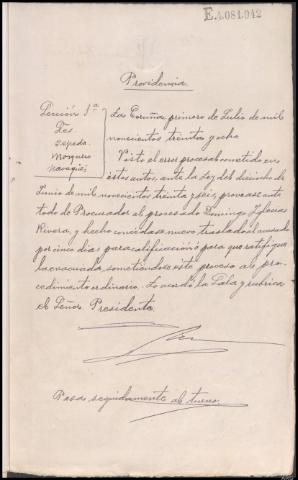 E.4.081.942
Providencia
Sección 1ª
Tes
Cepeda
Mosquera
Naragas
La Coruña primero de Julio de mil
novecientos treinta y ocho
Visto el error procesal cometido en
estos autos, ante la Ley del dieciocho de
Junio de mil novecientos treinta y seis, provease ante
todo de Procurador al procesado Domingo Iglesias
Rivera, y hecho concedase nuevo traslado al acusado
por cinco dias para calificación para que ratifique
la evacuada, sometiendose este proceso al pro-
cedimiento ordinario. Lo acordó la Sala y rubrica
el Señor Presidente.
Pasa seguidamente al turno.